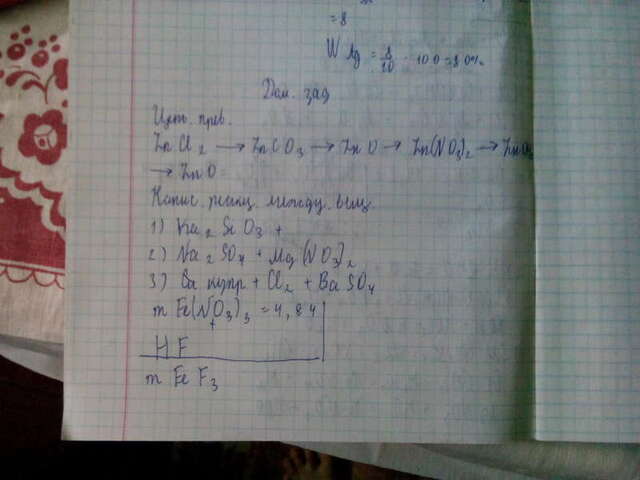 = 8
W Ag = 8/10 · 100 = 80%
Дом. зад
Цепь. прев.
ZnCl2 → ZnCO3 → ZnO → Zn(NO3)2 →
→ ZnO
Напис. реакц. между. вещ.
1) SiO3 +
2) Na2SO4 + Mg(NO3)2
3) купр + Cl2 + BaSO4
m Fe(NO3)3 = 4,84
+
HF
m FeF3